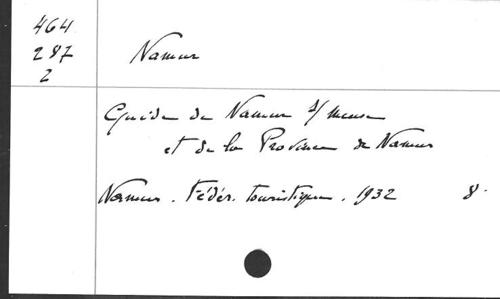 464
287
2
Namur
Guide de Namur s/ Meuse
et de la Province de Namur
Namur. Fédér. touristique. 1932 8°